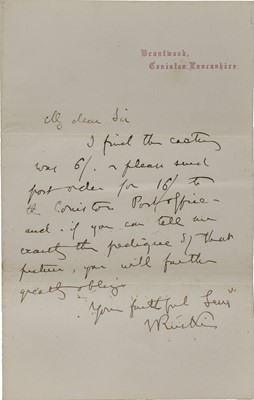 Brantwood,
Coniston, Lancashire.
My dear Sir
I find the casting
was 6/. & please send
post order for 16/ to
the Coniston Post office -
and - if you can tell me
exactly the pedigree of that
picture, you will further
greatly oblige
"Your faithful Servt"
J Ruskin